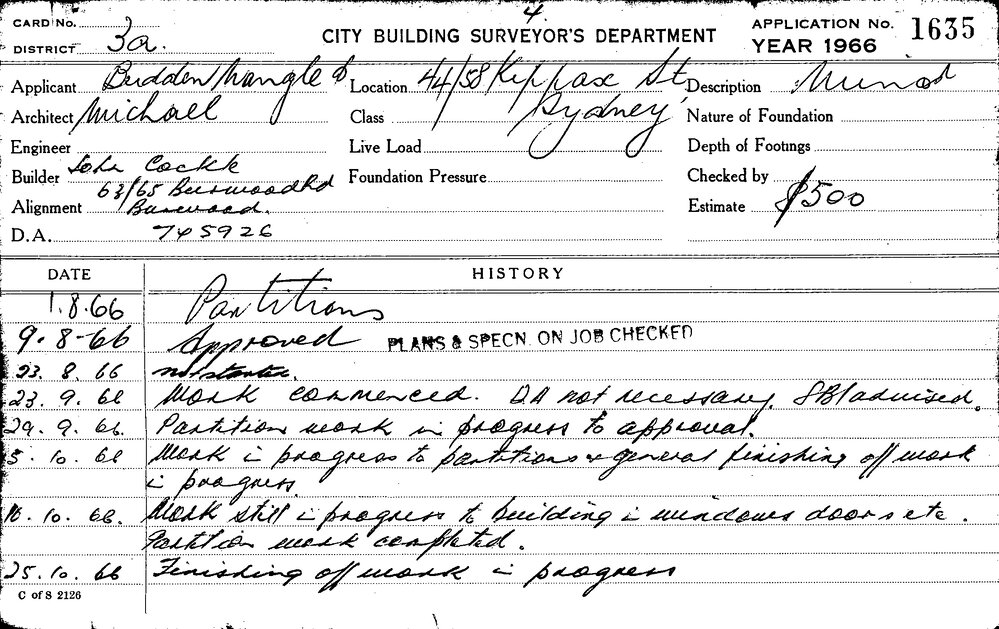 4.
CARD No.
DISTRICT 3a.
CITY BUILDING SURVEYOR'S DEPARTMENT
APPLICATION No. 1635
YEAR 1966
Applicant Budden Nangle &
Architect Michael
Engineer
Builder John Cockle
63/65 Burwood Rd
Alignment Burwood.
D.A. 745926
Location 44/58 Kippax St
Sydney
Class
Live Load
Foundation Pressure
Description Minor
Nature of Foundation
Depth of Footings
Checked by
Estimate $500
DATE HISTORY
1.8.66 Partitions
9.8-66 Approved PLANS & SPECN. ON JOB CHECKED
23.8.66 not started.
23.9.66 Work commenced. DA not necessary. advised.
29.9.66. Partition work in progress to approval.
5.10.66 Work in progress to partitions & general finishing off work
in progress.
10.66. Work still in progress to building in windows doors etc.
Partition work completed.
25.10.66 Finishing off work in progress
C of S 2126